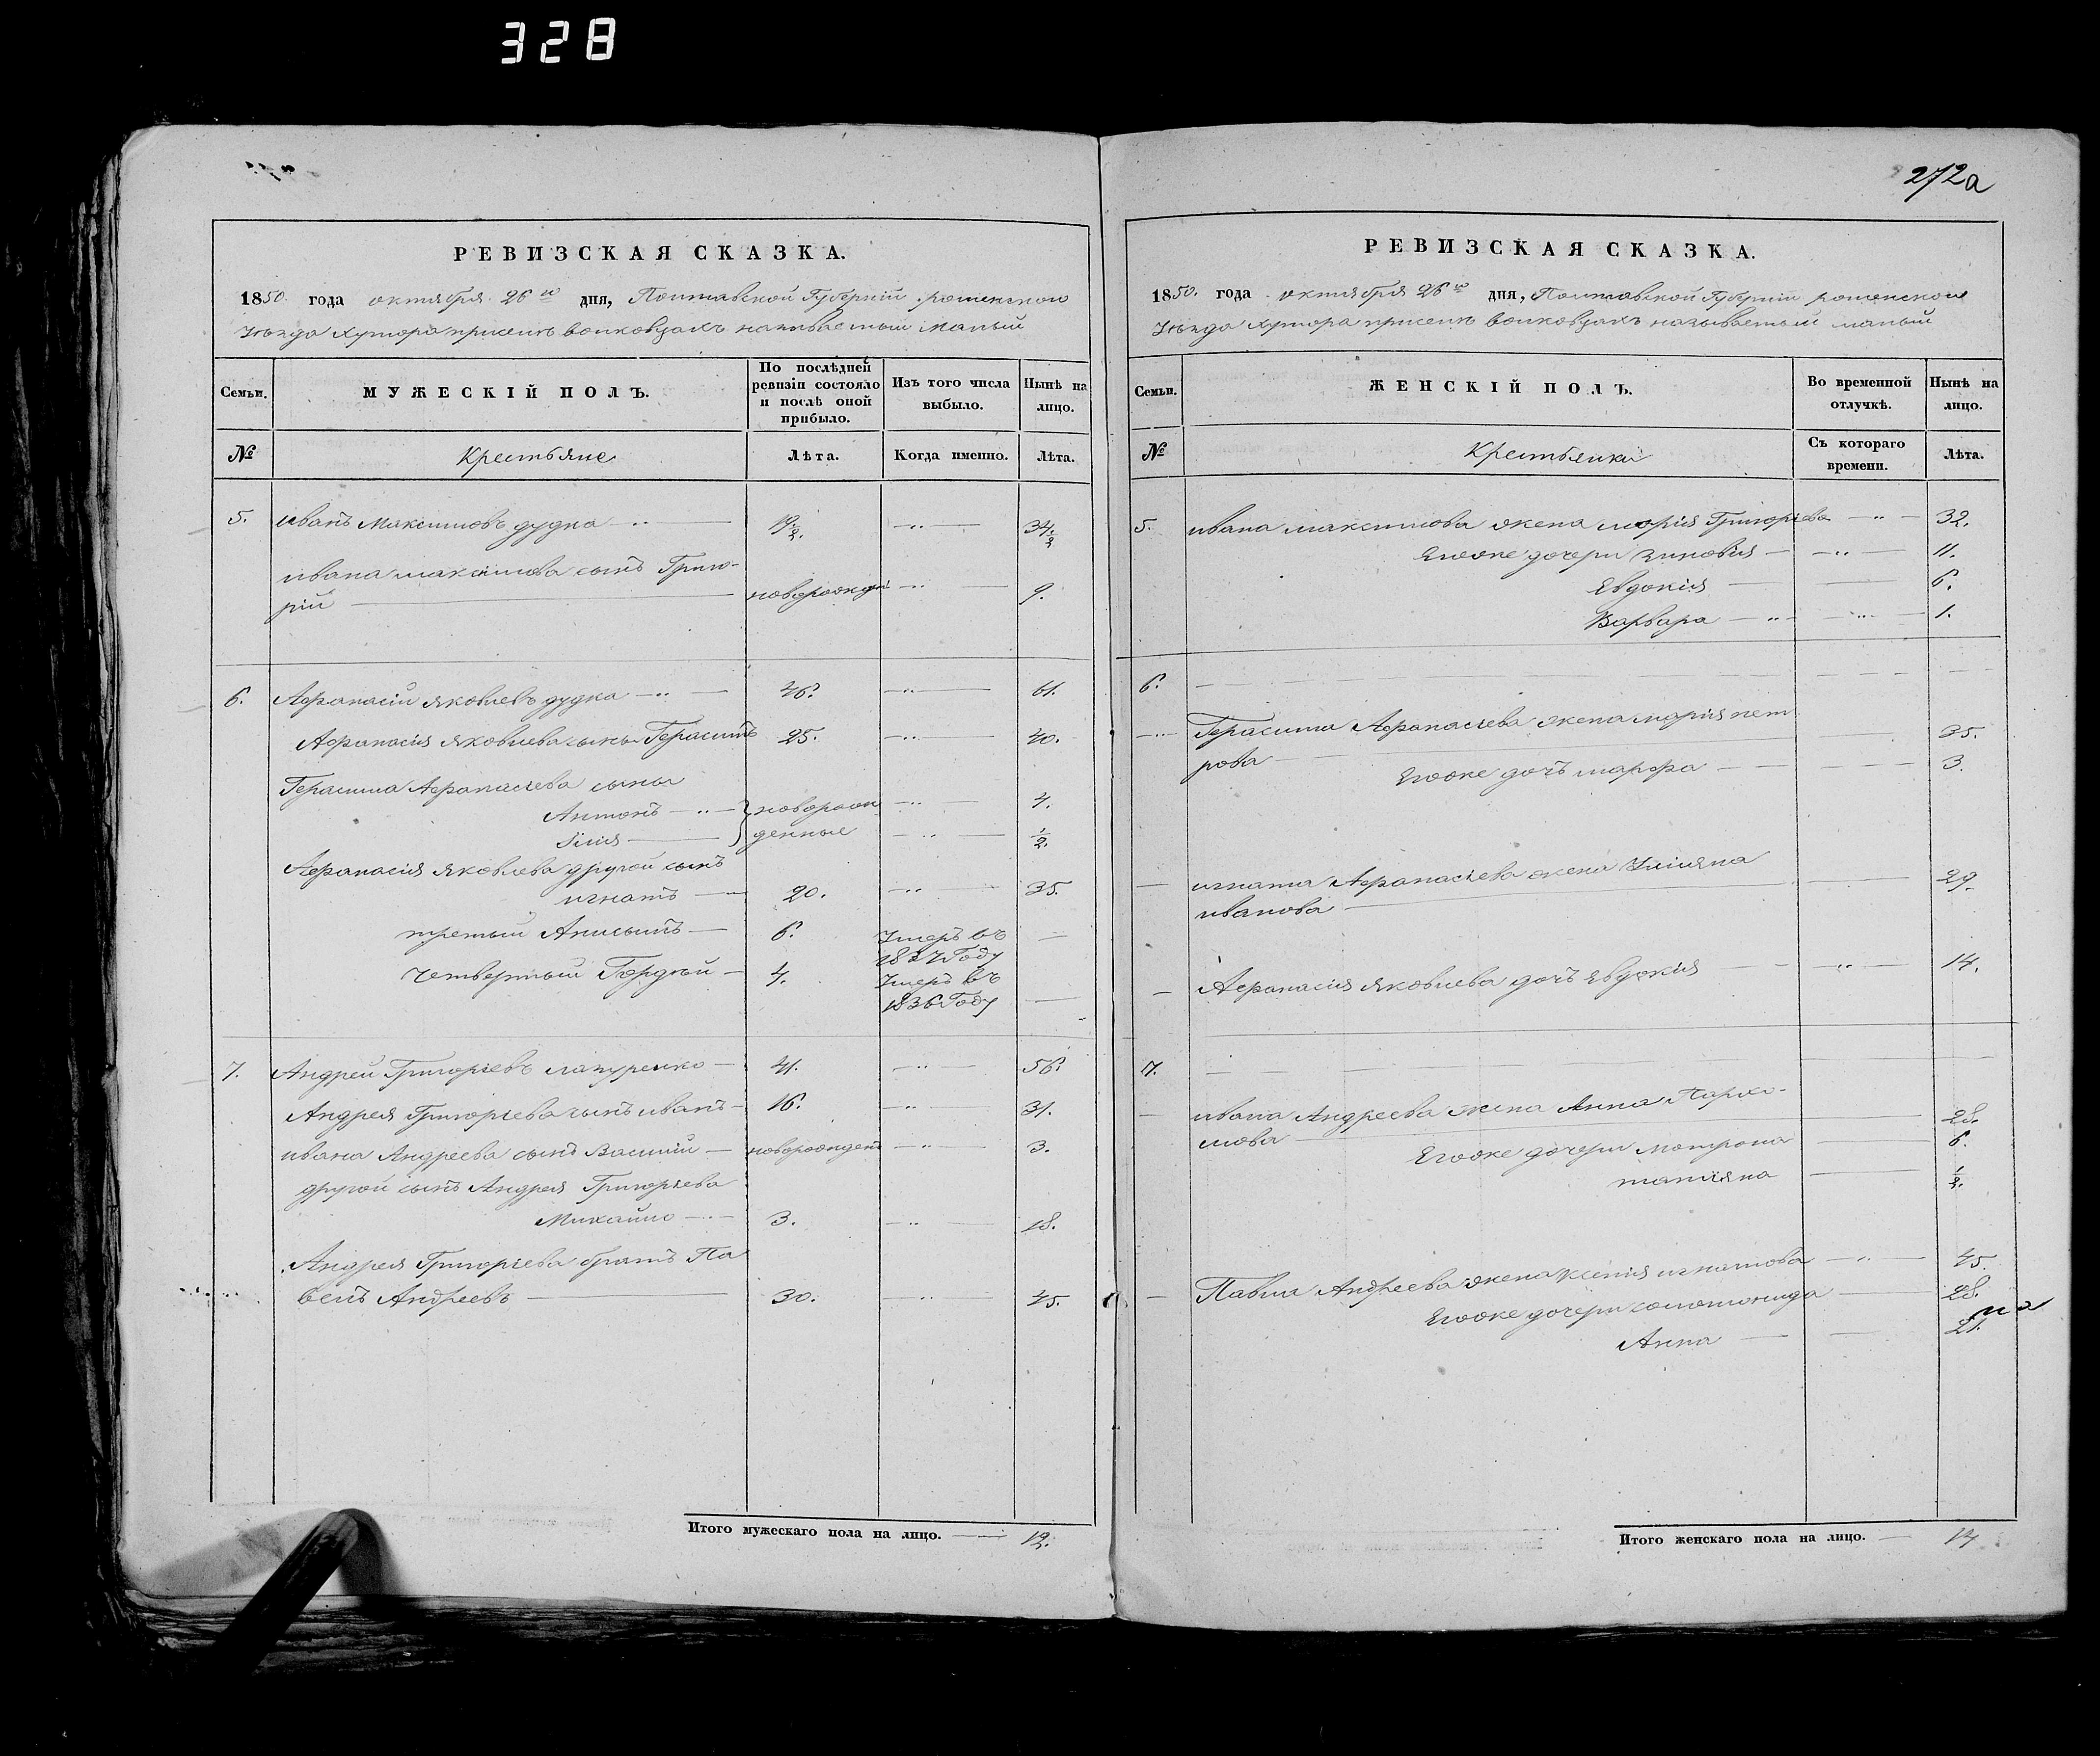 328
272а
РЕВИЗСКАЯ СКАЗКА.
1850. года октября 26 го дня, Полтавской Губерніи роменскаго
Уѣзда Хутора присели волковцахъ называемый малый
Семьи.
МУЖЕСКІЙ ПОЛЪ.
По послѣдней ревизіи состояло и послѣ оной прибыло.
Изъ того числа выбыло.
Нынѣ на лицо.
№
Крестьяне
Лѣта.
Когда именно.
Лѣта.
5. иванъ Максимовъ дудка 19 1/2. 34 1/2
ивана максимова сынъ Григо-
рій новорожден 9.
6. Афанасій яковлевъ дудка 46. 61.
Афанасія яковлева сынъ Герасимъ 25. 40.
Герасима Афанасіева сыны
Антонъ новорож 4.
Ілія денные 1/2.
Афанасія яковлева другой сынъ
игнатъ 20. 35.
третый Анисимъ 6. Умеръ въ
1837 Году
четвертый Гордѣй 4. Умеръ въ
1836 Году
7. Андрей Григоріевъ лазуренко 41. 56.
Андрея Григоріева сынъ иванъ 16. 31.
ивана Андреева сынъ Василій новорожденъ 3.
другой сынъ Андрея Григоріева
Михайло 3. 18.
Андрея Григоріева братъ Па
велъ Андреевъ 30. 45.
Итого мужескаго пола на лицо. 12.
РЕВИЗСКАЯ СКАЗКА.
1850. года октября 26 го дня, Полтавской Губерніи роменскаго
Уѣзда Хутора присели волковцахъ называемый малый
Семьи.
ЖЕНСКІЙ ПОЛЪ.
Во временной отлучкѣ.
Нынѣ на лицо.
№
Крестьянки
Съ котораго времени.
Лѣта.
5. ивана максимова жена марія Григоріева 32.
Егоже дочери Зиновія 11.
Евдокія 6.
Варвара 1.
6.
Герасима Афанасіева жена марія пет
рова 35.
Егоже дочъ марфа 3.
игната Афанасіева жена Уліяна
иванова 29.
Афанасія яковлева дочъ Евдокія 14.
7.
ивана Андреева жена Анна Пархо-
мова 28.
Егоже дочери Матрона 6.
татіяна 1/2.
Павла Андреева жена Ксенія игнатова 45.
Егоже дочери соломонида 28.
Анна 21.
Итого женскаго пола на лицо. 14